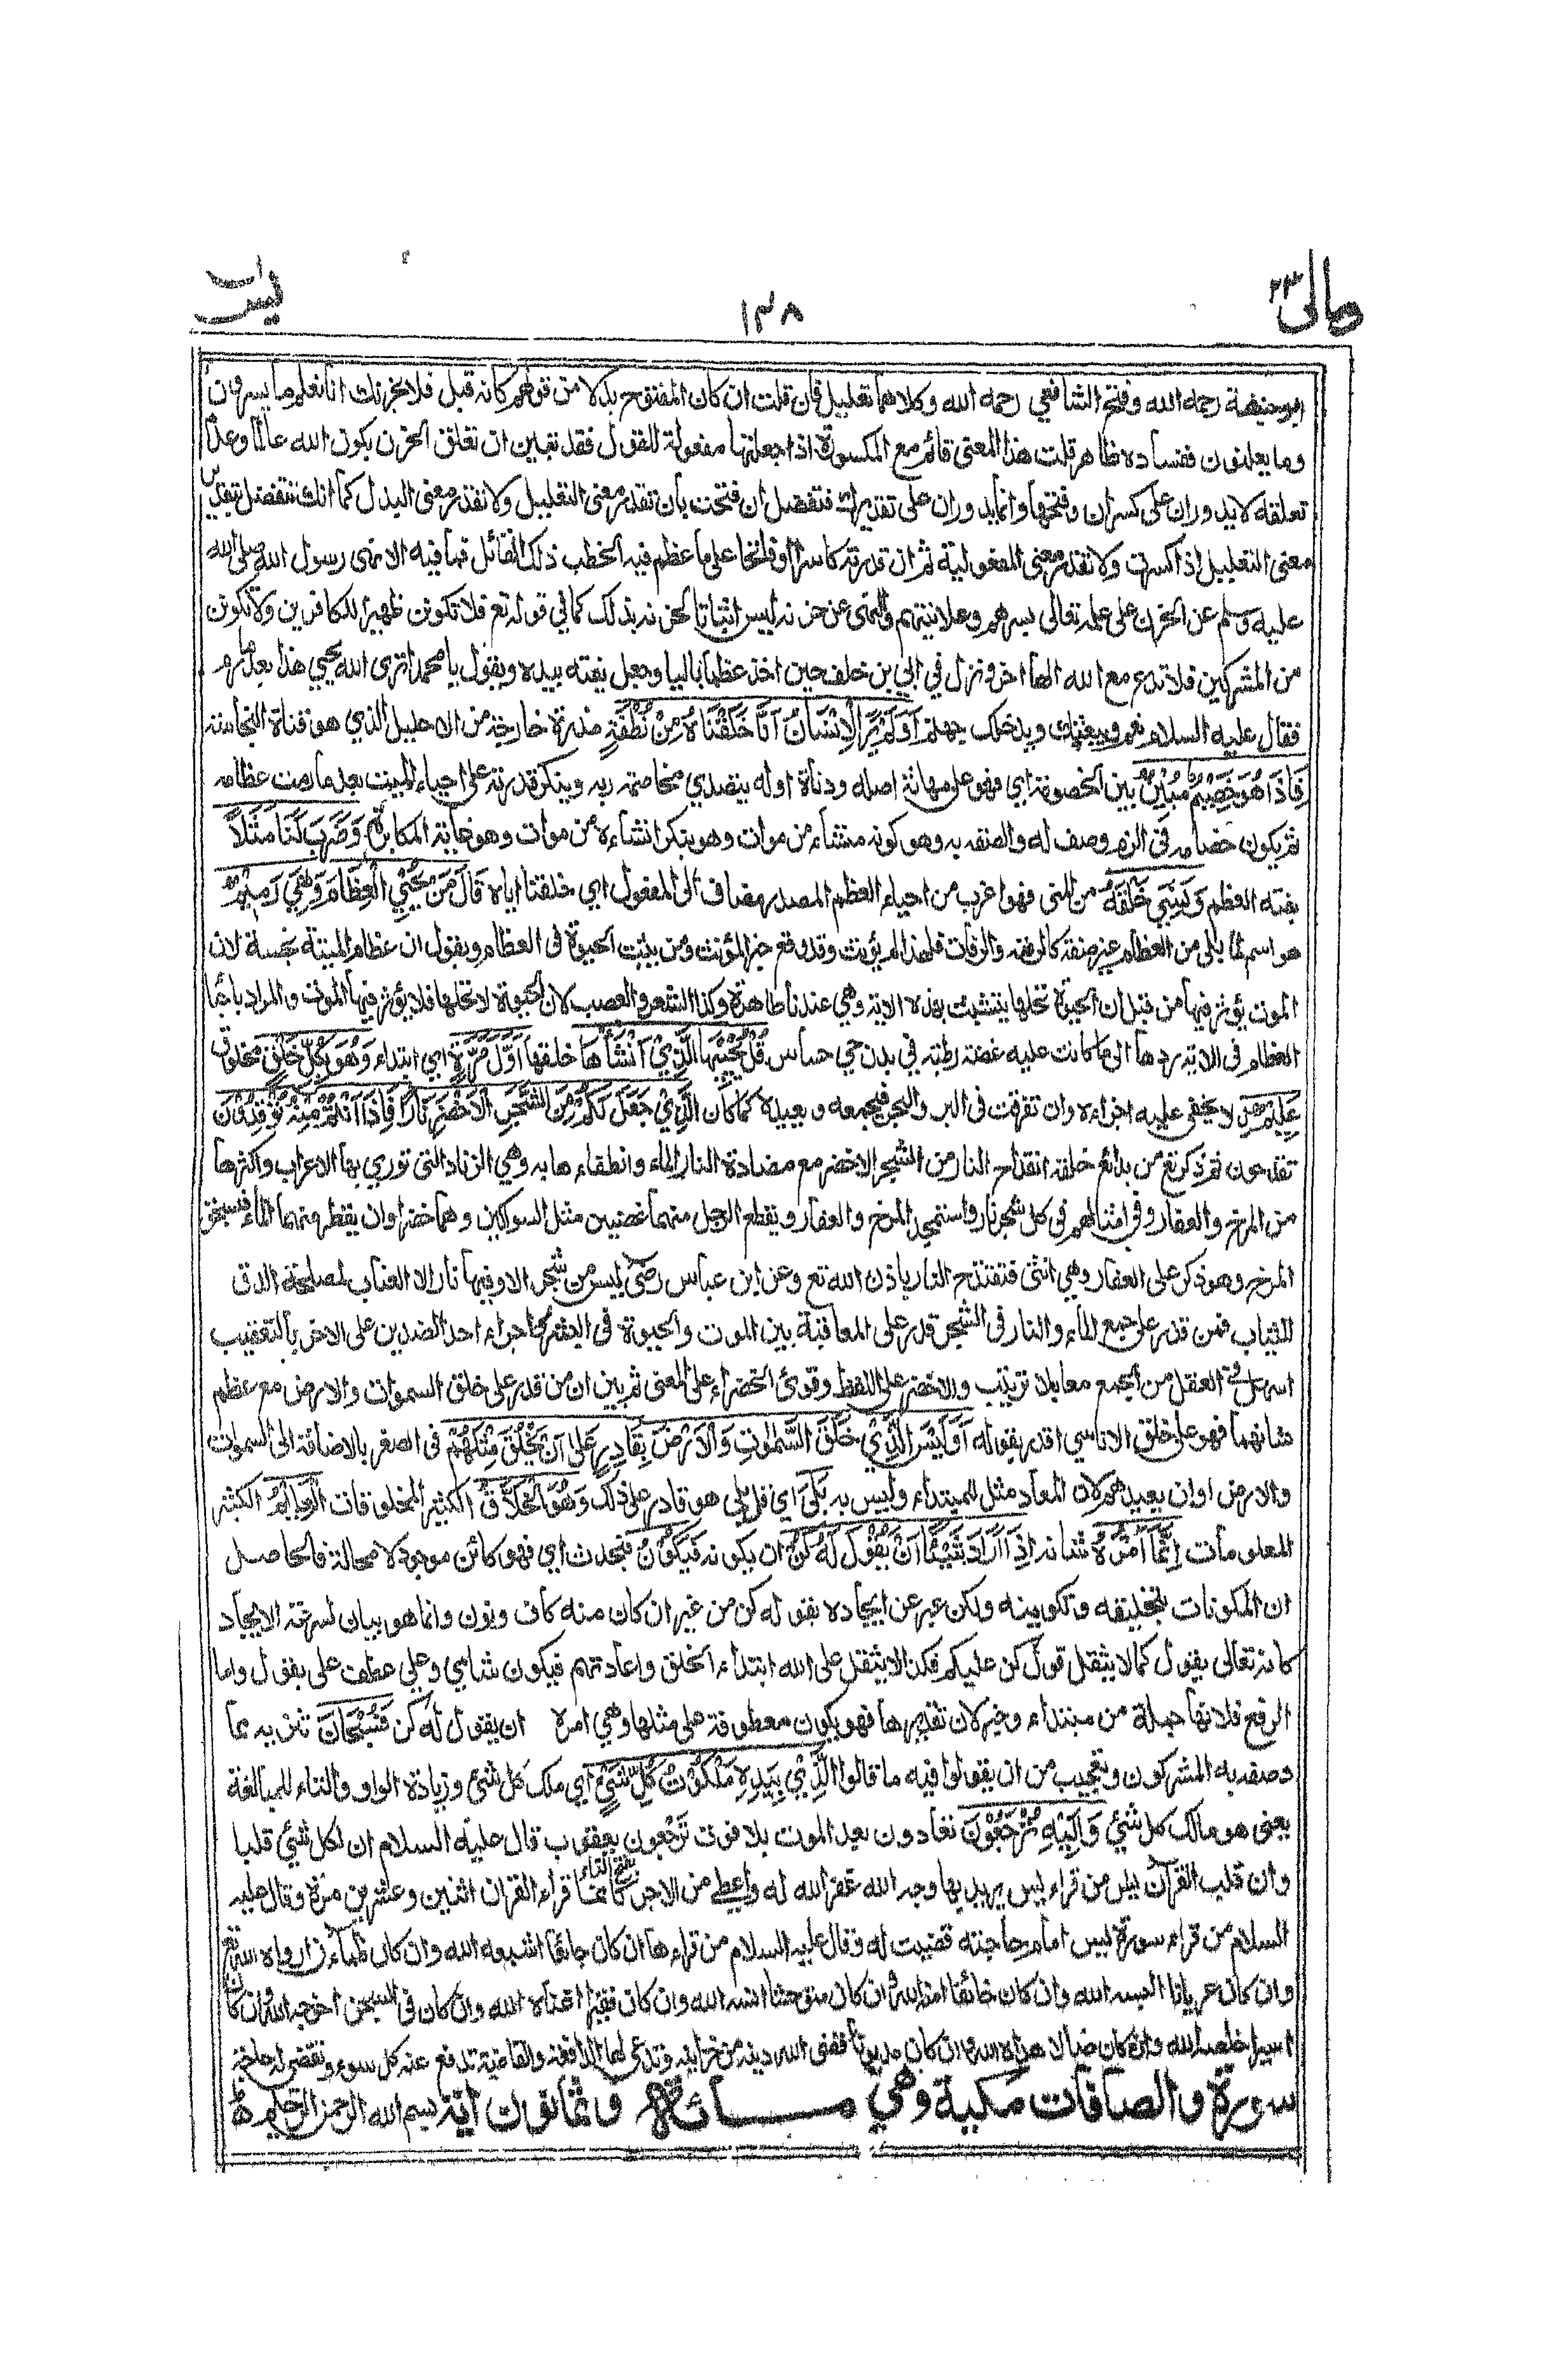 ومالى ٢٣
١٣٨
يس
ابو حنيفة رحمه الله وفتح الشافعي رحمه الله وكلاهما تعليل فان قلت ان كان المفتوح بدلا من قولهم كانه قيل فلا يحزنك انا نعلم ما يسرون
وما يعلنون ففساده ظاهر قلت هذا المعنى قائم مع المكسورة اذا جعلتها مفعولة للقول فقد تبين ان تعلق الحزن بكون الله عالما وعدم
تعلقه لا يدوران على كسر ان وفتحها وانما يدوران على تقديرك فتفصل ان فتحت بان تقدر معنى التعليل ولا تقدر معنى البدل كما انك تفصل بتقدير
معنى التعليل اذا كسرت ولا تقدر معنى المفعولية ثم ان قدرته كاسرا او فاتحا على ما عظم فيه الخطب ذلك القائل فما فيه الا نهى رسول الله صلى الله
عليه وسلم عن الحزن على علمه تعالى بسرهم وعلانيتهم والنهى عن حزنه ليس اثباتا لحزنه بذلك كما في قوله تع فلا تكونن ظهيرا للكافرين ولا تكونن
من المشركين فلا تدع مع الله الها اخر ونزل في ابي بن خلف حين اخذ عظما باليا وجعل يفته بيده ويقول يا محمد اترى الله يحيي هذا بعد ما رم
فقال عليه السلام نعم ويبعثك ويدخلك جهنم اَوَلَمْ يَرَ الْاِنْسَانُ اَنَّا خَلَقْنَاهُ مِنْ نُطْفَةٍ مذرة خارجة من الاحليل الذي هو قناة النجاسة
فَاِذَا هُوَ خَصِيْمٌ مُبِيْنٌ بين الخصومة اي فهو على مهانة اصله ودناة اوله يتصدي مخاصمة ربه وينكر قدرته على احياء الميت بعد ما رمت عظامه
ثم يكون خصامه في الزم وصف له والصقه به وهو كونه منشاء من موات وهو ينكر انشاءه من موات وهو غاية المكابرة وَضَرَبَ لَنَا مَثَلًا
بفته العظم وَنَسِيَ خَلْقَهُ من المنى فهو اغرب من احياء العظم المصدر مضاف الى المفعول اي خلقنا اياه قَالَ مَنْ يُحْيِي الْعِظَامَ وَهِيَ رَمِيْمٌ
هو اسم لما بلى من العظام غير صفة كالرمة والرفات فلهذا لم يؤنث وقد وقع خبر المؤنث ومن يثبت الحيوة فى العظام ويقول ان عظام الميتة نجسة لان
الموت يؤثر فيها من قبل ان الحيوة تحلها يتشبث بهذه الاية وهي عندنا طاهرة وكذا الشعر والعصب لان الحيوة لا تحلها فلا يؤثر فيها الموت والمراد باحياء
العظام فى الاية ردها الى ما كانت عليه غضة رطبة في بدن حي حساس قُلْ يُحْيِيْهَا الَّذِيْ اَنْشَاَهَا خلقها اَوَّلَ مَرَّةٍ اي ابتداء وَهُوَ بِكُلِّ خَلْقٍ مخلوق
عَلِيْمٌ لا يخفى عليه اجزاءه وان تفرقت فى البر والبحر فيجمعه ويعيده كما كان الَّذِيْ جَعَلَ لَكُمْ مِنَ الشَّجَرِ الْاَخْضَرِ نَارًا فَاِذَا اَنْتُمْ مِنْهُ تُوْقِدُوْنَ
تقدحون ثم ذكر تع من بدائع خلقه انقداح النار من الشجر الاخضر مع مضادة النار الماء وانطفاءها به وهي الزناد التى توري بها الاعراب واكثرها
من المرخ والعفار وفي امثالهم فى كل شجر نار واستمجد المرخ والعفار ويقطع الرجل منهما غصنين مثل السواكين وهما خضراوان يقطر منهما الماء فيسحق
المرخ وهو ذكر على العفار وهي انثى فتنقدح النار باذن الله تع وعن ابن عباس رضى ليس من شجر الا وفيها نار الا العناب لمصلحة الدق
للثياب فمن قدر على جمع الماء والنار فى الشجر قدر على المعاقبة بين الموت والحيوة فى البشر واجراء احد الضدين على الاخر بالتعقيب
اسهل في العقل من الجمع معا بلا ترتيب والاخضر على اللفظ وقرئ الخضراء على المعنى ثم بين ان من قدر على خلق السموات والارض مع عظم
شانهما فهو على خلق الاناسي اقدر بقوله اَوَلَيْسَ الَّذِيْ خَلَقَ السَّمٰوٰتِ وَالْاَرْضَ بِقَادِرٍ عَلٰى اَنْ يَخْلُقَ مِثْلَهُمْ فى الصغر بالاضافة الى السموات
والارض او ان يعيدهم لان المعاد مثل للمبتداء وليس به بَلٰى اي قل بلى هو قادر على ذلك وَهُوَ الْخَلَّاقُ الكثير المخلوقات الْعَلِيْمُ الكثير
المعلومات اِنَّمَا اَمْرُهُ شانه اِذَا اَرَادَ شَيْئًا اَنْ يَقُوْلَ لَهُ كُنْ ان يكونه فَيَكُوْنُ فيحدث اي فهو كائن موجود لا محالة فالحاصل
ان المكونات بتخليقه وتكوينه ولكن عبر عن ايجاده بقوله كن من غير ان كان منه كاف ونون وانما هو بيان لسرعة الايجاد
كانه تعالى يقول كما لا يثقل قول كن عليكم فكذا لا يثقل على الله ابتداء الخلق واعادتهم فيكون شامي وعلي عطف على يقول واما
الرفع فلانها جملة من مبتداء وخبر لان تقديرها فهو يكون معطوفة على مثلها وهي امره ان يقول له كن فَسُبْحَانَ تنزيه مما
وصفه به المشركون وتعجيب من ان يقولوا فيه ما قالوا الَّذِيْ بِيَدِهٖ مَلَكُوْتُ كُلِّ شَيْءٍ اي ملك كل شئ وزيادة الواو والتاء للمبالغة
يعنى هو مالك كل شئي وَاِلَيْهِ تُرْجَعُوْنَ تعادون بعد الموت بلا فوت تَرجعون يعقوب قال عليه السلام ان لكل شئي قلبا
وان قلب القرآن يس من قراء يس يريد بها وجه الله غفر الله له واعطى من الاجر كانما قراء القران اثنين وعشرين مرة وقال عليه
السلام من قراء سورة يس امام حاجته قضيت له وقال عليه السلام من قراءها ان كان جائعا اشبعه الله وان كان ظمآن ارواه الله تع
وان كان عريانا البسه الله وان كان خائفا امنه الله وان كان مستوحشا انسه الله وان كان فقيرا اغناه الله وان كان فى السجن اخرجه الله وان كان
اسيرا خلصه الله وان كان ضالا هداه الله وان كان مديونا قضى الله دينه من خزاينه وتدعى لها الدافعة والقاضية تدفع عنه كل سوء وتقضى له حاجة
سورة والصافات مكية وهي مـــائة و ثمانون اية بسم الله الرحمن الرحيم